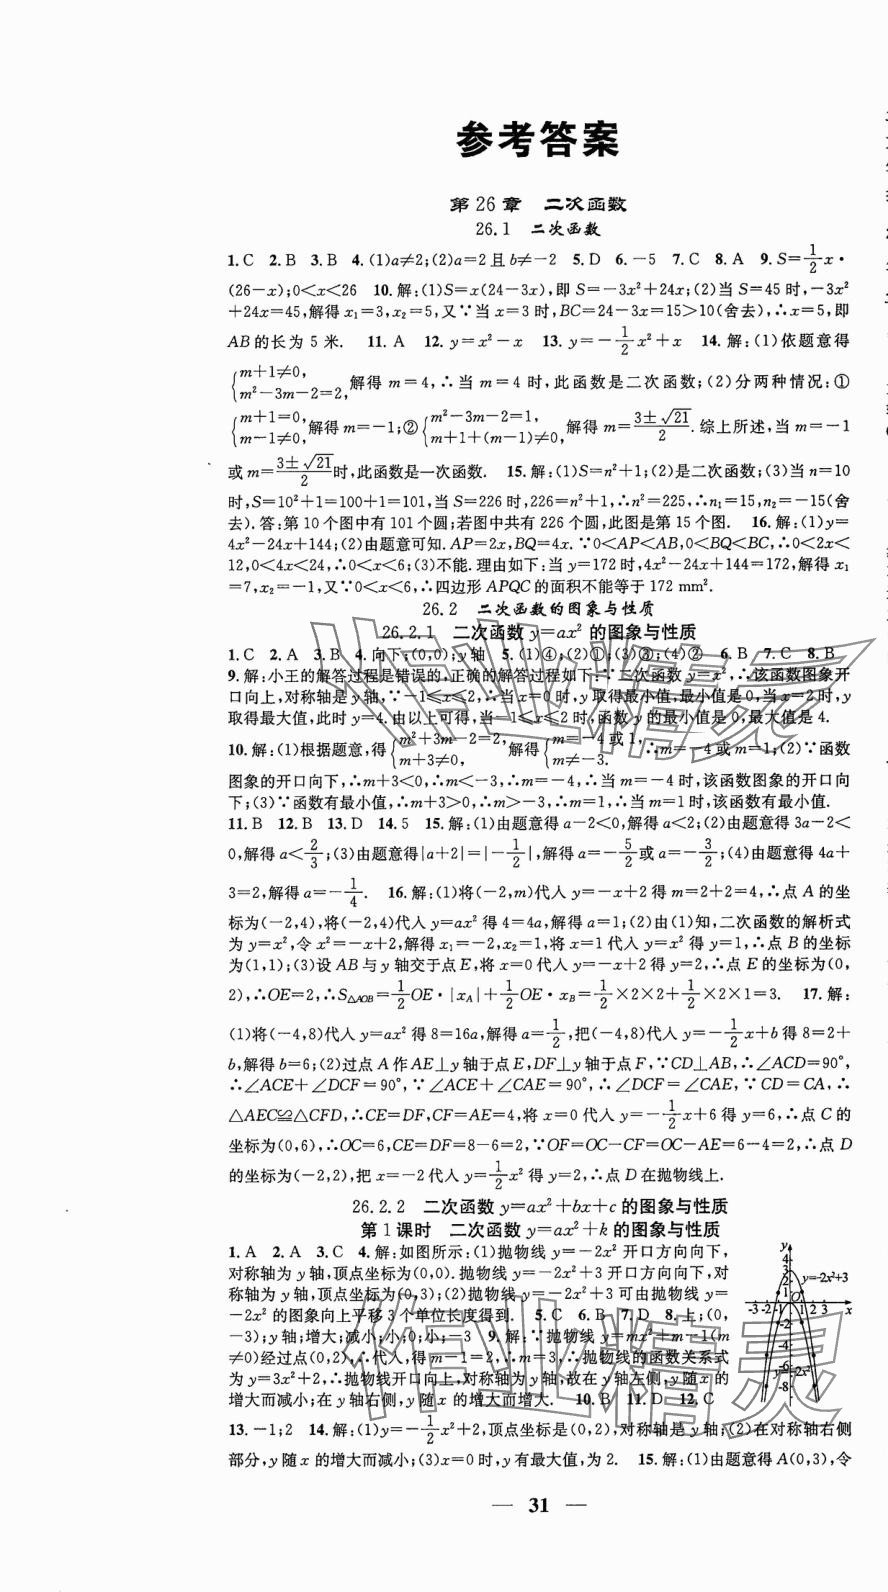 参考答案
第26章 二次函数
26.1 二次函数
1.C 2.B 3.B 4.(1)a≠2;(2)a=2且b≠-2 5.D 6.-5 7.C 8.A 9.S=1/2x·
(26-x);0<x<26 10.解:(1)S=x(24-3x),即S=-3x²+24x;(2)当S=45时,-3x²
+24x=45,解得x₁=3,x₂=5,又∵当x=3时,BC=24-3x=15>10(舍去),∴x=5,即
AB的长为5米. 11.A 12.y=x²-x 13.y=-1/2x²+x 14.解:(1)依题意得
{m+1≠0, m²-3m-2=2,解得m=4,∴当m=4时,此函数是二次函数;(2)分两种情况:①
{m+1=0, m-1≠0,解得m=-1;②{m²-3m-2=1, m+1+(m-1)≠0,解得m=(3±√21)/2.综上所述,当m=-1
或m=(3±√21)/2时,此函数是一次函数. 15.解:(1)S=n²+1;(2)是二次函数;(3)当n=10
时,S=10²+1=100+1=101,当S=226时,226=n²+1,∴n²=225,∴n₁=15,n₂=-15(舍
去).答:第10个图中有101个圆;若图中共有226个圆,此图是第15个图. 16.解:(1)y=
4x²-24x+144;(2)由题意可知.AP=2x,BQ=4x.∵0<AP<AB,0<BQ<BC,∴0<2x<
12,0<4x<24,∴0<x<6;(3)不能.理由如下:当y=172时,4x²-24x+144=172,解得x₁
=7,x₂=-1,又∵0<x<6,∴四边形APQC的面积不能等于172 mm².
26.2 二次函数的图象与性质
26.2.1 二次函数y=ax²的图象与性质
1.C 2.A 3.B 4.向下;(0,0);y轴 5.(1)④;(2)①;(3)③;(4)② 6.B 7.C 8.B
9.解:小王的解答过程是错误的,正确的解答过程如下:∵二次函数y=x²,∴该函数图象开
口向上,对称轴是y轴,∵-1≤x≤2,∴当x=0时,y取得最小值,最小值是0,当x=2时,y
取得最大值,此时y=4.由以上可得,当-1≤x≤2时,函数y的最小值是0,最大值是4.
10.解:(1)根据题意,得{m²+3m-2=2, m+3≠0,解得{m=-4或1, m≠-3.∴m=-4或m=1;(2)∵函数
图象的开口向下,∴m+3<0,∴m<-3,∴m=-4,∴当m=-4时,该函数图象的开口向
下;(3)∵函数有最小值,∴m+3>0,∴m>-3,∴m=1,∴当m=1时,该函数有最小值.
11.B 12.B 13.D 14.5 15.解:(1)由题意得a-2<0,解得a<2;(2)由题意得3a-2<
0,解得a<2/3;(3)由题意得|a+2|=|-1/2|,解得a=-5/2或a=-3/2;(4)由题意得4a+
3=2,解得a=-1/4. 16.解:(1)将(-2,m)代入y=-x+2得m=2+2=4,∴点A的坐
标为(-2,4),将(-2,4)代入y=ax²得4=4a,解得a=1;(2)由(1)知,二次函数的解析式
为y=x²,令x²=-x+2,解得x₁=-2,x₂=1,将x=1代入y=x²得y=1,∴点B的坐标
为(1,1);(3)设AB与y轴交于点E,将x=0代入y=-x+2得y=2,∴点E的坐标为(0,
2),∴OE=2,∴S△AOB=1/2OE·|xA|+1/2OE·xB=1/2×2×2+1/2×2×1=3. 17.解:
(1)将(-4,8)代入y=ax²得8=16a,解得a=1/2,把(-4,8)代入y=-1/2x+b得8=2+
b,解得b=6;(2)过点A作AE⊥y轴于点E,DF⊥y轴于点F,∵CD⊥AB,∴∠ACD=90°,
∴∠ACE+∠DCF=90°,∵∠ACE+∠CAE=90°,∴∠DCF=∠CAE,∵CD=CA,∴
△AEC≌△CFD,∴CE=DF,CF=AE=4,将x=0代入y=-1/2x+6得y=6,∴点C的
坐标为(0,6),∴OC=6,CE=DF=8-6=2,∵OF=OC-CF=OC-AE=6-4=2,∴点D
的坐标为(-2,2),把x=-2代入y=1/2x²得y=2,∴点D在抛物线上.
26.2.2 二次函数y=ax²+bx+c的图象与性质
第1课时 二次函数y=ax²+k的图象与性质
1.A 2.A 3.C 4.解:如图所示:(1)抛物线y=-2x²开口方向向下,
对称轴为y轴,顶点坐标为(0,0).抛物线y=-2x²+3开口方向向下,对
称轴为y轴,顶点坐标为(0,3);(2)抛物线y=-2x²+3可由抛物线y=
-2x²的图象向上平移3个单位长度得到. 5.C 6.B 7.D 8.上;(0,
-3);y轴;增大;减小;小;0;小;-3 9.解:∵抛物线y=mx²+m-1(m
≠0)经过点(0,2),∴代入,得m-1=2,∴m=3,∴抛物线的函数关系式
为y=3x²+2,∴抛物线开口向上,对称轴为y轴,故在y轴左侧,y随x的
增大而减小;在y轴右侧,y随x的增大而增大. 10.B 11.D 12.C
13.-1;2 14.解:(1)y=-1/2x²+2,顶点坐标是(0,2),对称轴是y轴;(2)在对称轴右侧
部分,y随x的增大而减小;(3)x=0时,y有最大值,为2. 15.解:(1)由题意得A(0,3),令
y
4
3
2
1
y=-2x²+3
O
-3 -2 -1
1 2 3
x
-2
-4
-6
y=-2x²
-8
— 31 —
作业精灵
作业精灵